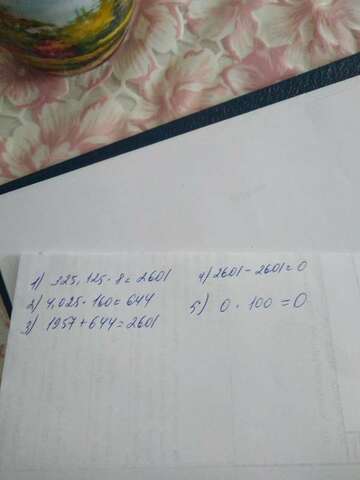 1) 325,125 · 8 = 2601
2) 4,025 · 160 = 644
3) 1957 + 644 = 2601
4) 2601 - 2601 = 0
5) 0 · 100 = 0